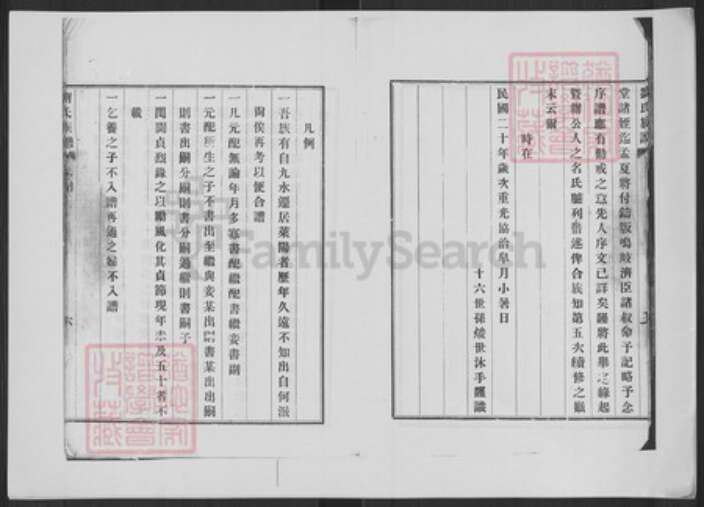 堂諸姪迄孟夏將付鋟版鳴岐濟臣諸叔命予記略予念
序譜應有勸戒之意先人序文已詳矣謹將此舉之緣起
暨辦公人之名氏臚列備述俾合族知第五次續修之巔
末云爾
時在
民國二十年歲次重光協洽皐月小暑日
十六世孫 世沐手謹識
凡例
一吾族有自九水遷居萊陽者歷年久遠不知出自何派
尚俟再考以便合譜
一凡元配無論年月多寡書配繼配書繼妾書副
一元配所生之子不書出至繼與妾某出則書某出出嗣
則書出嗣分嗣則書分嗣過繼則書嗣子
一閨閫貞烈錄之以勵風化其貞節現年未及五十者不
載
一乞養之子不入譜再適之婦不入譜
六
FamilySearch